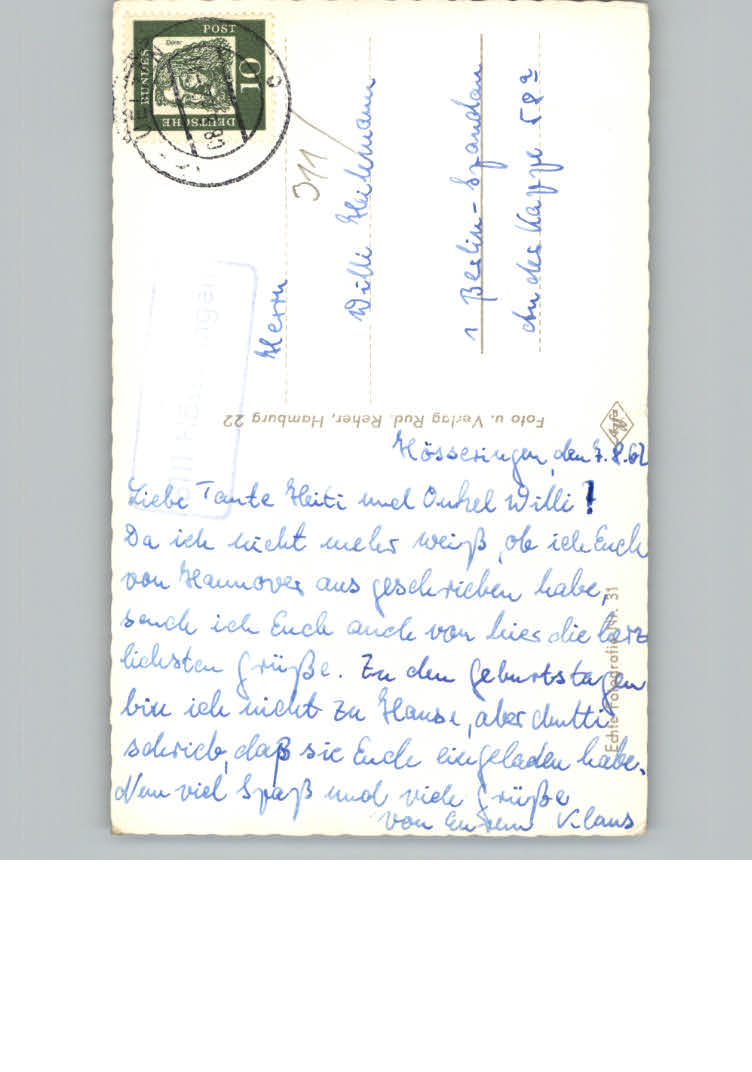 Hösseringen, den 7.8.62
Liebe Tante Heiti und Onkel Willi!
Da ich nicht mehr weiß, ob ich Euch
von Hannover aus geschrieben habe,
sende ich Euch auch von hier die herz
lichsten Grüße. Zu den Geburtstagen
bin ich nicht zu Hause, aber Mutti
schrieb, daß sie Euch eingeladen habe.
Nun viel Spaß und viele Grüße
von Eurem Klaus
Herrn
Willi Heitmann
1 Berlin-Spandau
An der Kappe 58a
311
Foto u. Verlag Rud. Reher, Hamburg 22
Echte Fotografie Nr. 31
DEUTSCHE
BUNDES
POST
10
Dürer